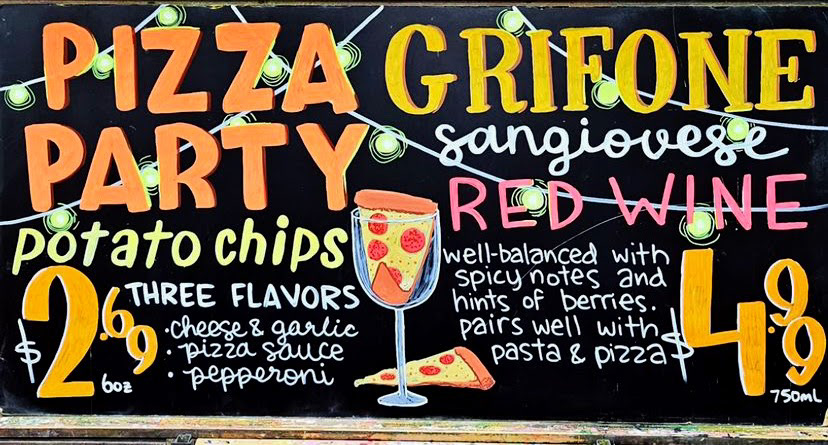 PIZZA
PARTY
potato chips
THREE FLAVORS
• cheese & garlic
• pizza sauce
• pepperoni
$2.69
6oz
GRIFONE
sangiovese
RED WINE
well-balanced with
spicy notes and
hints of berries.
pairs well with
pasta & pizza
$4.99
750mL